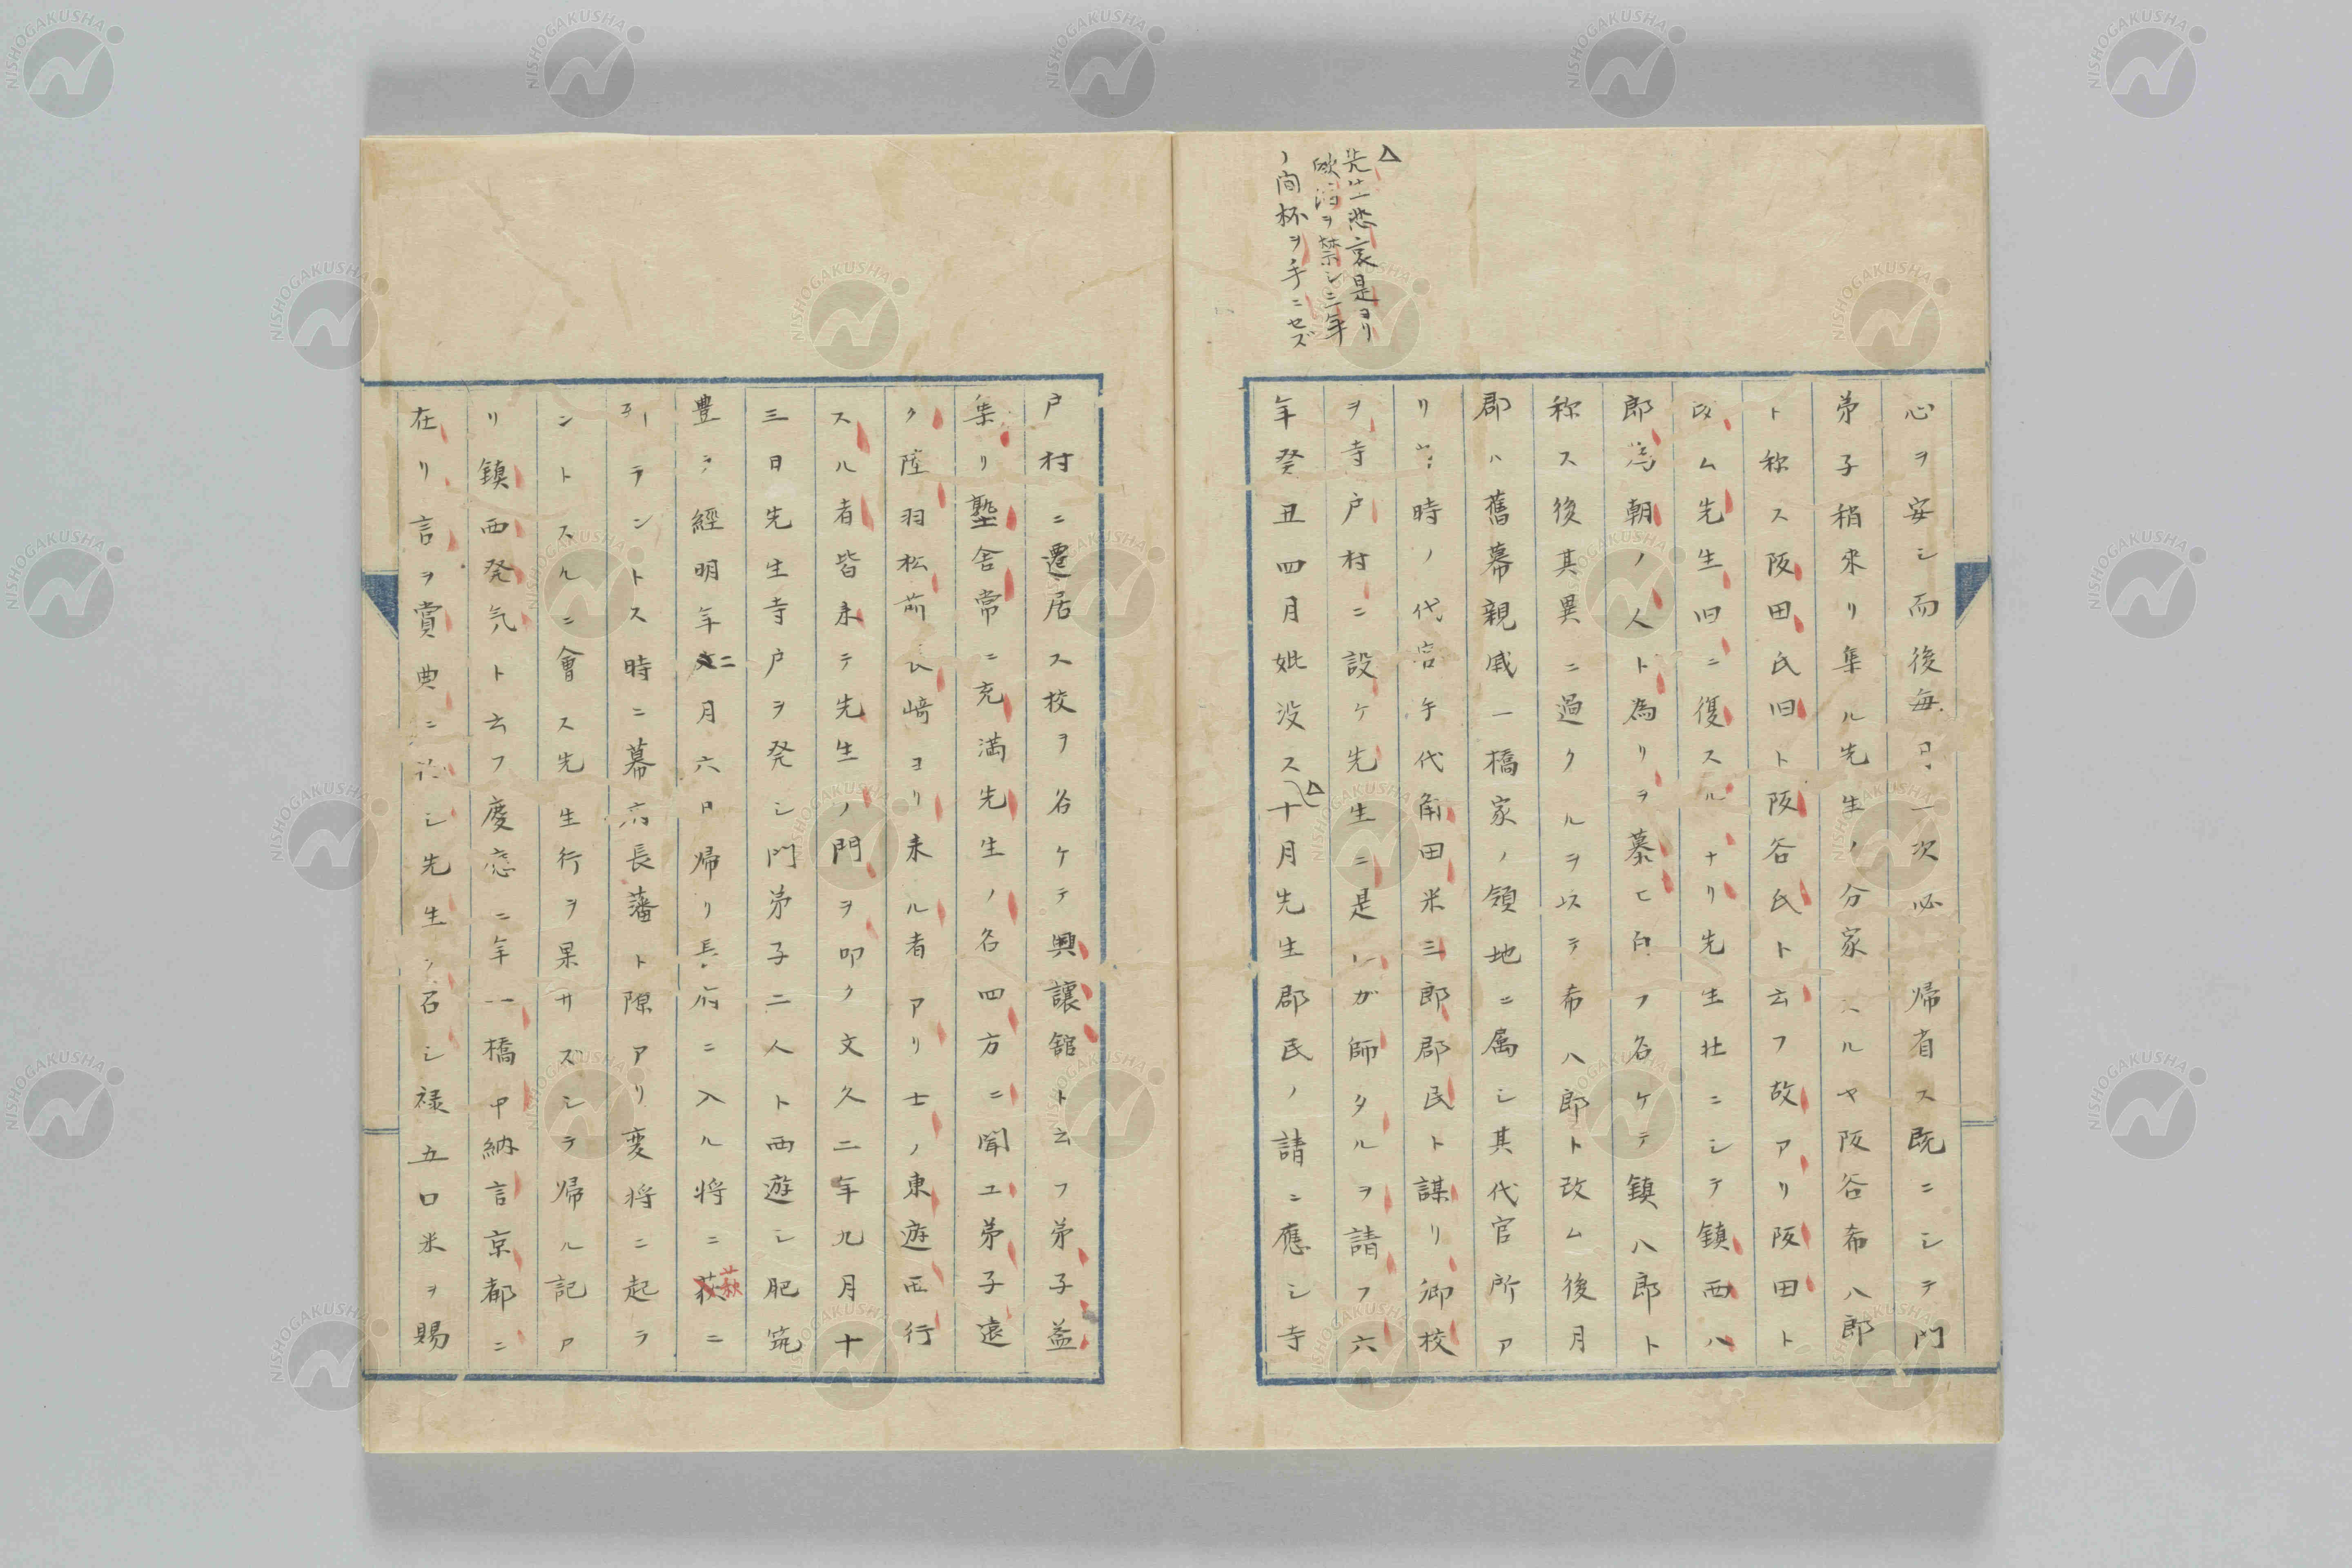 △
先生悲哀是ヨリ
飲酒ヲ禁シ三年
ノ間杯ヲ手ニセズ
心ヲ安シ而後毎月一次必帰省ス既ニシテ門
弟子稍来リ集ル先生ノ分家スルヤ阪谷希八郎
ト称ス阪田氏旧ト阪谷氏ト云フ故アリ阪田ト
改ム先生旧ニ復スルナリ先生壮ニシテ鎮西八
郎為朝ノ人ト為リヲ慕ヒ自フ名ケテ鎮八郎ト
称ス後其異ニ過クルヲ以テ希八郎ト改ム後月
郡ハ舊幕親戚一橋家ノ領地ニ属シ其代官所ア
リ時ノ代官手代角田米三郎郡民ト謀リ郷校
ヲ寺戸村ニ設ケ先生ニ是レガ師タルヲ請フ六
年癸丑四月妣没ス△十月先生郡民ノ請ニ應シ寺
戸村ニ遷居ス校ヲ名ケテ興讓舘ト云フ弟子益
集リ塾舎常ニ充満先生ノ名四方ニ聞エ弟子遠
ク陸羽松前長崎ヨリ来ル者アリ士ノ東遊西行
スル者皆来テ先生ノ門ヲ叩ク文久二年九月十
三日先生寺戸ヲ発シ門弟子二人ト西遊シ肥筑
豊ヲ經明年二月六日帰リ長府ニ入ル将ニ萩ニ
到テントス時ニ幕府長藩ト隙アリ変将ニ起ラ
ントスルニ會ス先生行ヲ果サズシテ帰ル記ア
リ鎮西発気ト云フ慶應二年一橋中納言京都ニ
在リ言ヲ賞典ニシ先生ヲ召シ禄五口米ヲ賜